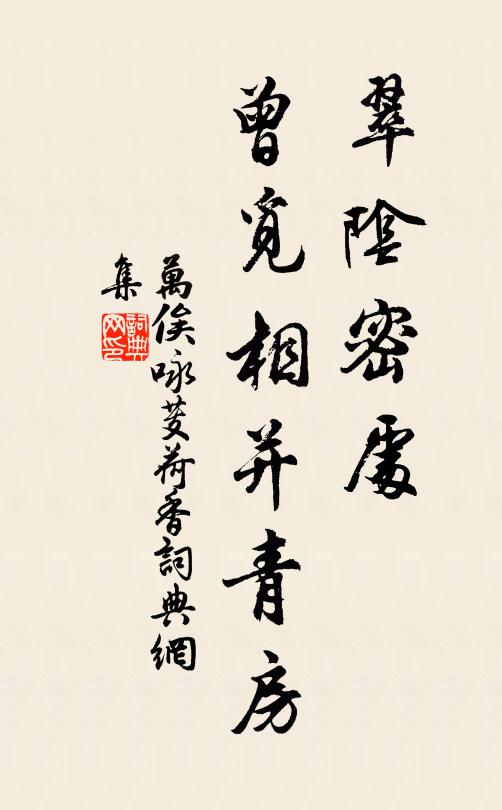 翠陰密處
曾覓相并青房
萬俟咏芰荷香詞典網
集
詞典網印